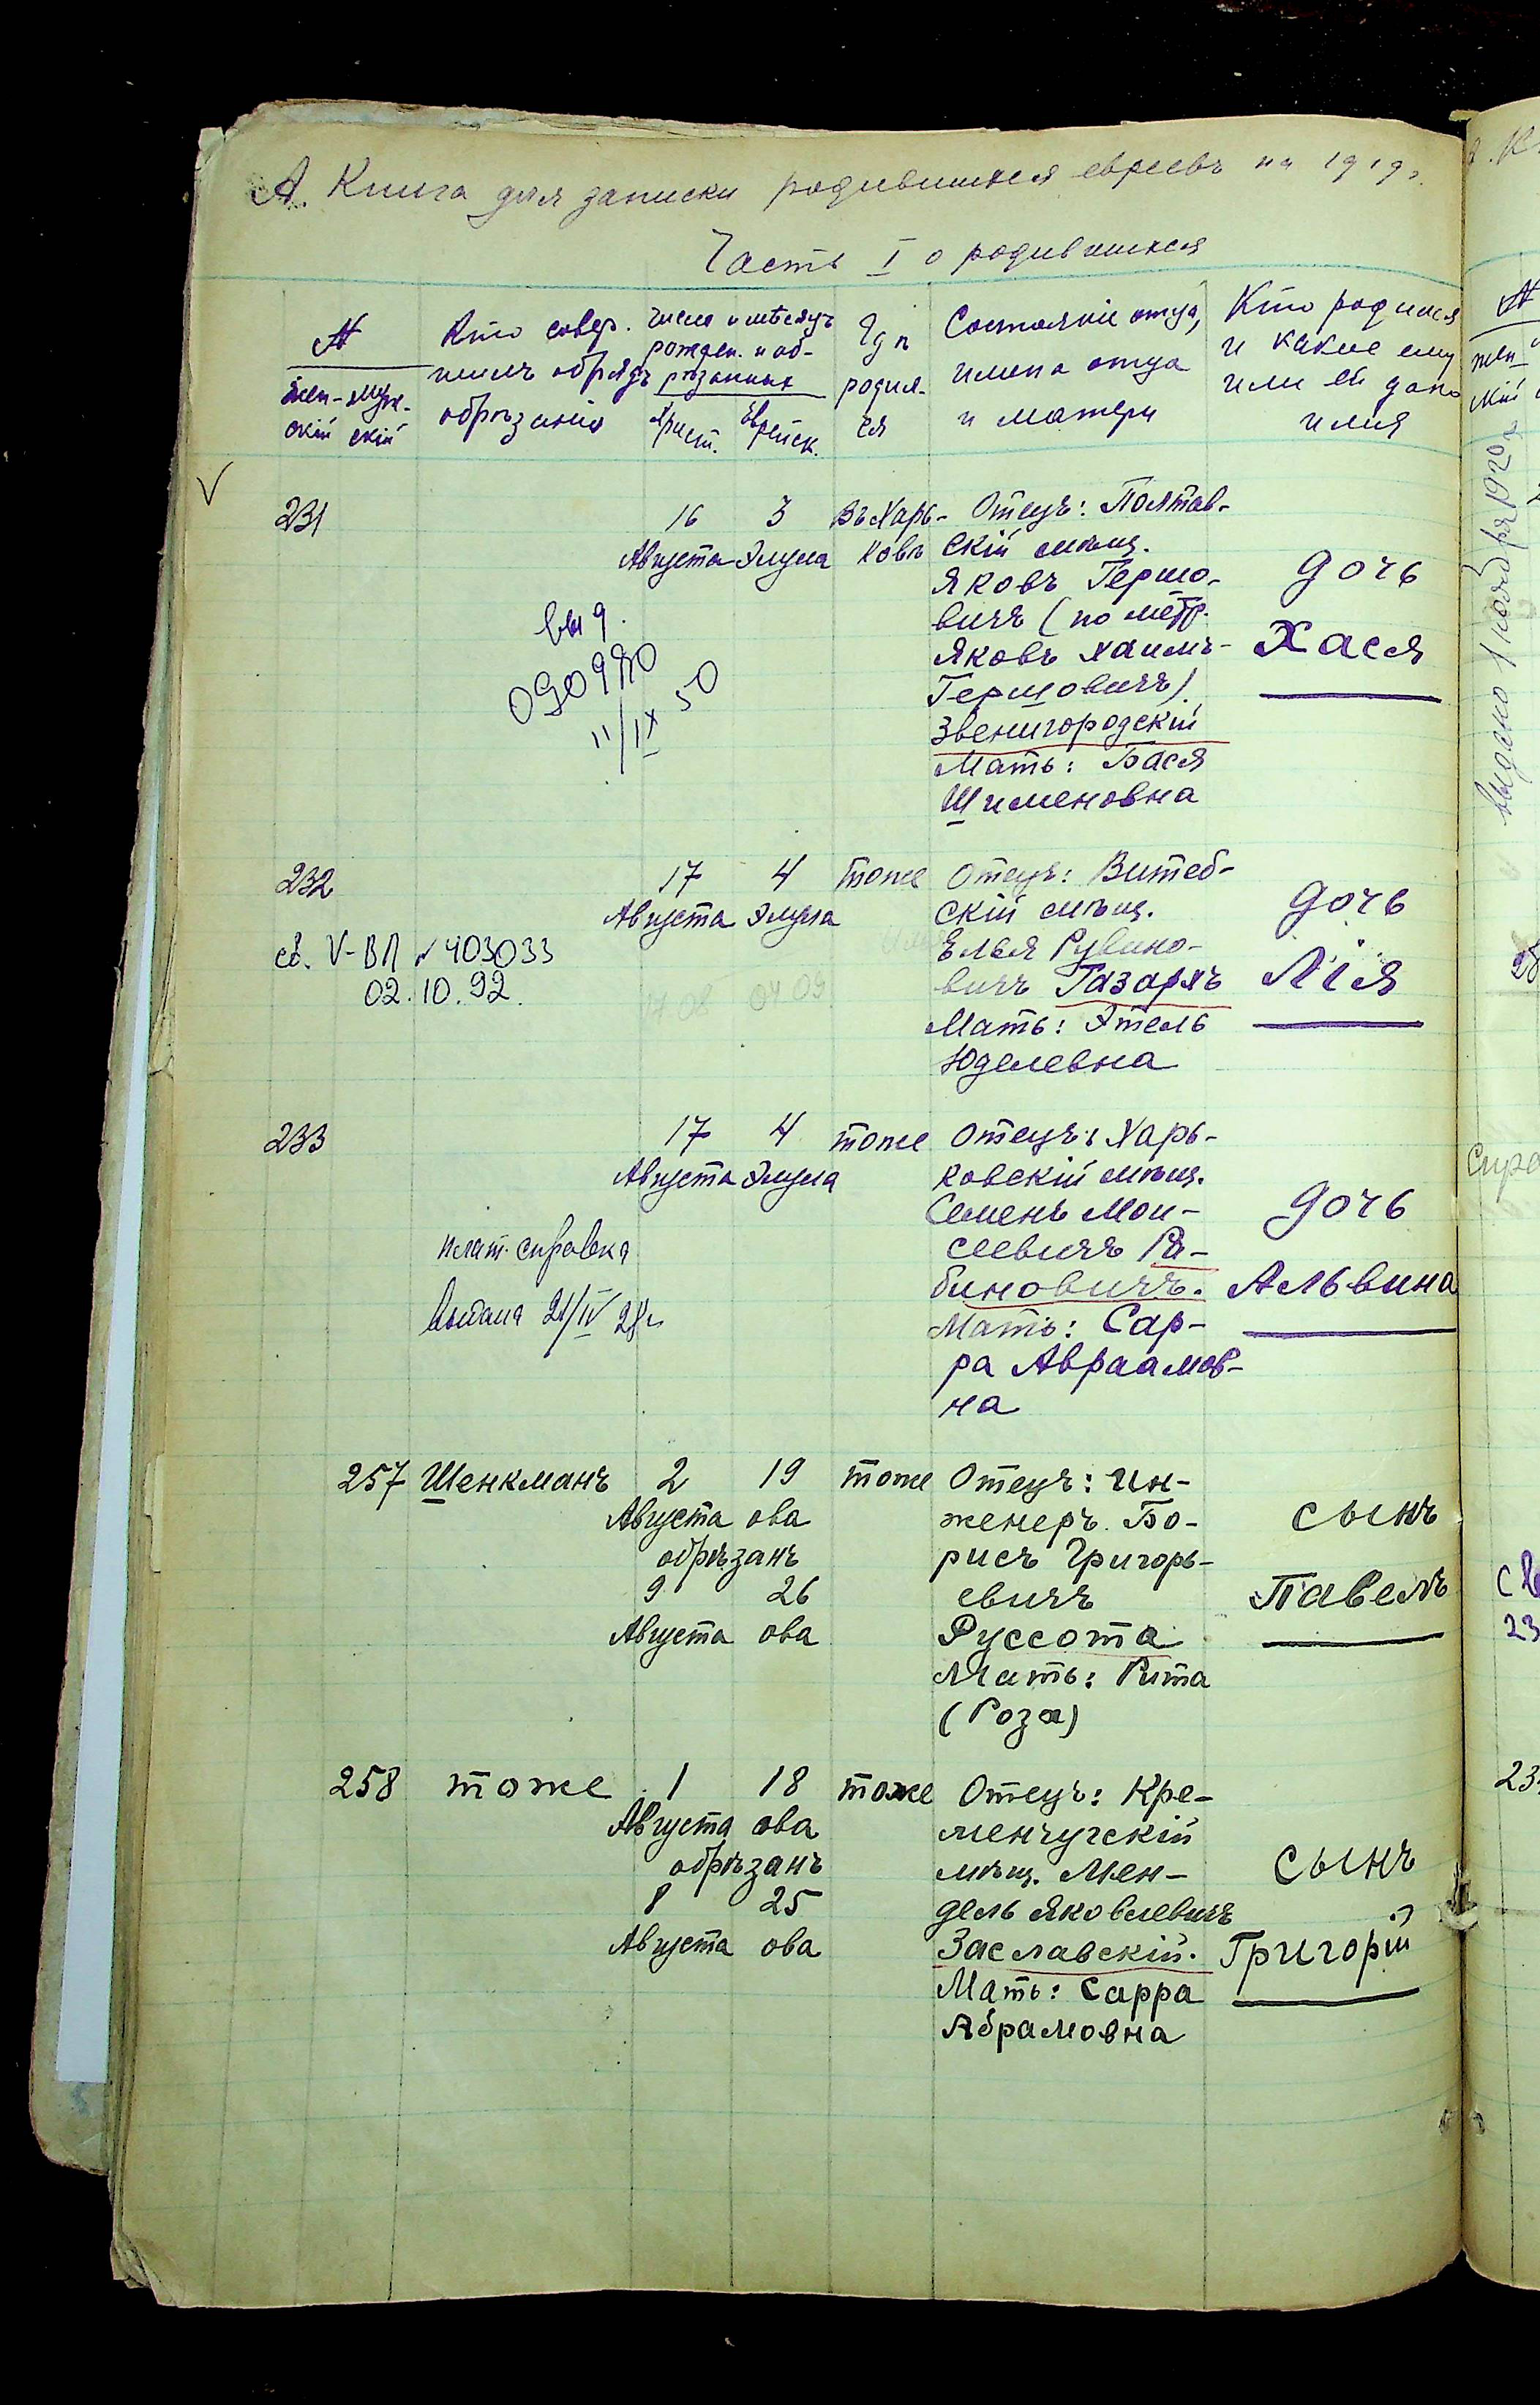 А. Книга для записки родившихся евреевъ на 1919 г.
Часть I о родившихся
№
Жен-скій
Муже-скій
Кто совер.
шилъ обрядъ
обрѣзанія
Число и мѣсяцъ
рожден. и об-
рѣзанія
Христ.
Еврейск.
Гдѣ
родил-
ся
Состояніе отца,
имена отца
и матери
Кто родился
и какое ему
или ей дано
имя
231
16
Августа
3
Элула
Въ Харь-
ковѣ
Отецъ: Полтав-
скій мѣщ.
Яковъ Гершо-
вичъ (по метр.
Яковъ Хаимъ-
Гершовичъ)
Звенигородскій
Мать: Бася
Шименовна
дочь
Хася
11/IX 50
232
св. V-ВЛ № 403033
02.10.92.
17
Августа
4
Элула
тоже
Отецъ: Витеб-
скій мѣщ.
Елья Рувино-
вичъ Газаръ
Мать: Этель
Юделевна
дочь
Лія
233
справка
выдана 21/IV 28 г.
17
Августа
4
Элула
тоже
Отецъ: Харь-
ковскій мѣщ.
Семенъ Мои-
сеевичъ Ра-
биновичъ.
Мать: Сар-
ра Авраамов-
на
дочь
Альвина
257
Шенкманъ
2
Августа
19
ова
обрѣзанъ
9
Августа
26
ова
тоже
Отецъ: Ин-
женеръ Бо-
рисъ Григорь-
евичъ
Руссота
Мать: Рита
(Роза)
сынъ
Павелъ
258
тоже
1
Августа
18
ова
обрѣзанъ
8
Августа
25
ова
тоже
Отецъ: Кре-
менчугскій
мѣщ. Мен-
дель Яковлевичъ
Заславскій.
Мать: Сарра
Абрамовна
сынъ
Григорій
выдано 1 ноября 1920 г.